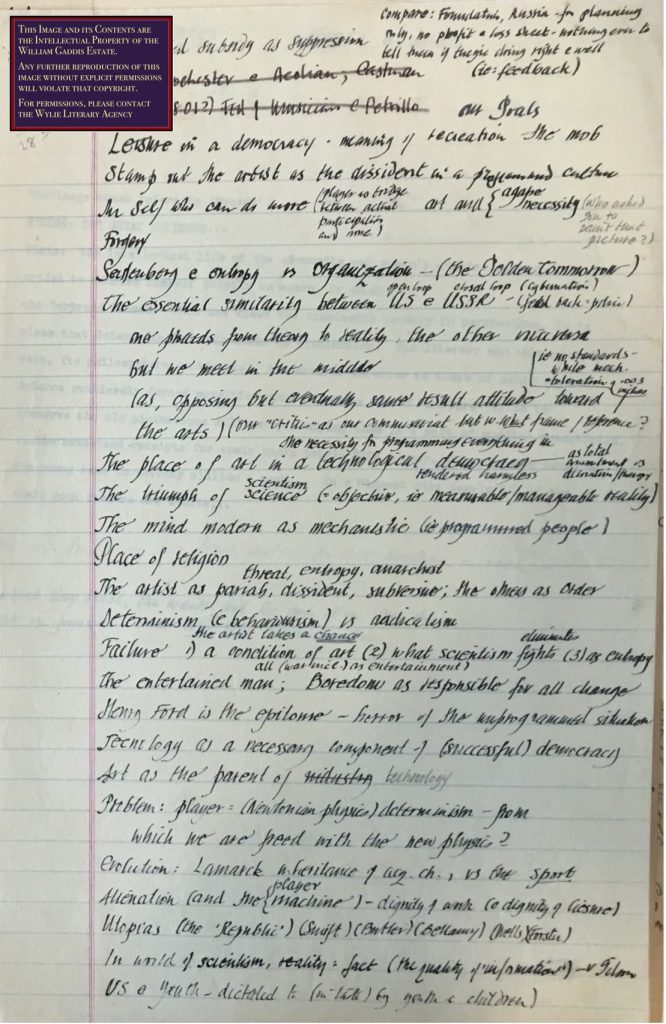 THIS IMAGE AND ITS CONTENTS ARE
THE INTELLECTUAL PROPERTY OF THE
WILLIAM GADDIS ESTATE.
ANY FURTHER REPRODUCTION OF THIS
IMAGE WITHOUT EXPLICIT PERMISSIONS
WILL VIOLATE THAT COPYRIGHT.
FOR PERMISSIONS, PLEASE CONTACT
THE WYLIE LITERARY AGENCY
Compare: Russia - for planning
only, no profit & loss sheet - nothing even to
tell them if they're doing right & well
(ie: feedback)
subsidy as suppression
& Aeolian; Eastman
musicians & Petrillo
our Goals
Leisure in a democracy - meaning of recreation the mob
Stamp out the artist as the dissident in a programmed culture
The self who can do more (player as bridge between actual participation and mine) art and { agape necessity (who asked you to paint that picture?)
Forgery
& entropy vs organization - (the Golden Tommorrow)
open loop closed loop (cybernation)
The essential similarity between US & USSR - (feed back =
one proceeds from theory to reality, the other viceversa
but we meet in the middle
(ie no standards - while mech. tolerations of .003 inches
(as, opposing but eventually same result attitude toward
the arts) (our "critic" as our commissariat but w what frame / reference?
the necessity for programming everything in
The place of art in a technological democracy
rendered harmless
as total commitment vs
The triumph of science scientism (= objective, ie measurable/manageable reality)
The mind modern as mechanistic (ie programmed people)
Place of religion
threat, entropy, anarchist
The artist as pariah, dissident, subversive; the others as order
Determinism (& behaviourism) vs radicalism
the artist takes a chance
eliminates
Failure 1) a condition of art (2) what scientism fights (3) as entropy
all (war incl.) as entertainment)
The entertained man; Boredom as responsible for all change
Henry Ford is the epitome - horror of the unprogrammed situation
Tecnology as a necessary component of (successful) democracy
Art as the parent of industry technology
Problem: player = (Newtonian physics) determinism - from
which we are freed with the new physics?
Evolution: Lamarck inheritance of acq. ch., vs the sport
Alienation (and the { player machine ) - dignity of work (& dignity of leisure)
Utopias (the 'Republic') (Swift) (Butler) (Bellamy) (Wells) (Forster)
In world of scientism, reality = fact (the quality of "information") - v
US & Youth - dictated to by youth & children)